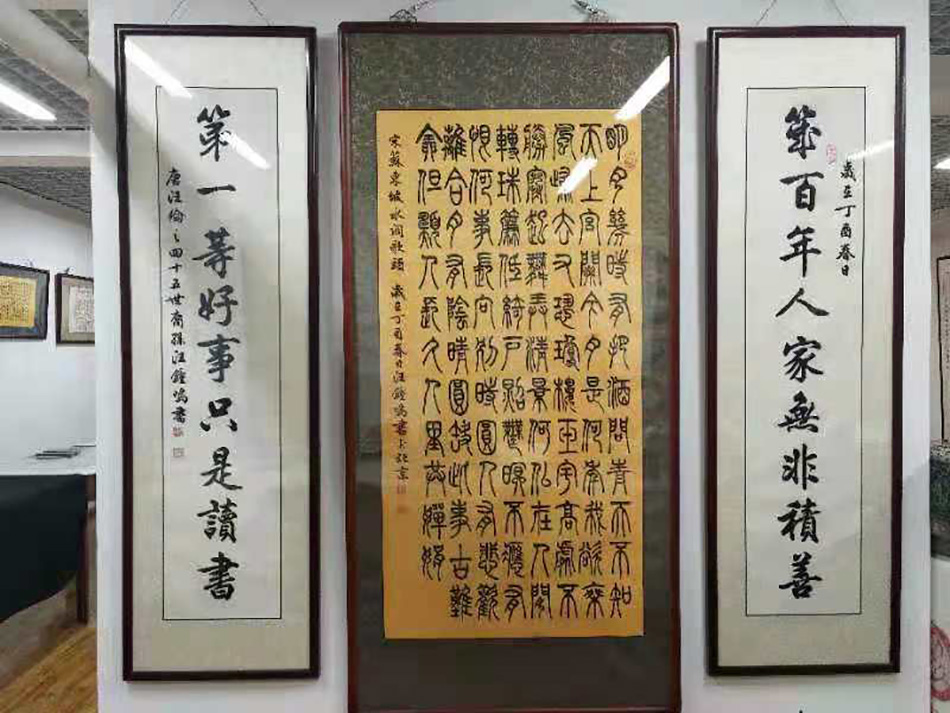 幾百年人家無非積善
歲在丁酉春日
明月幾時有把酒問青天不知
天上宮闕今夕是何年我欲乘
風歸去又恐瓊樓玉宇高處不
勝寒起舞弄清影何似在人間
轉珠簾低綺戶照無眠不應有
恨何事長向別時圓人有悲歡
離合月有陰晴圓缺此事古難
全但願人長久千里共嬋娟
宋蘇東坡水調歌頭 歲在丁酉春日汪鐘鳴書於北京
第一等好事只是讀書
唐汪倫之四十五世裔孫汪鐘鳴書